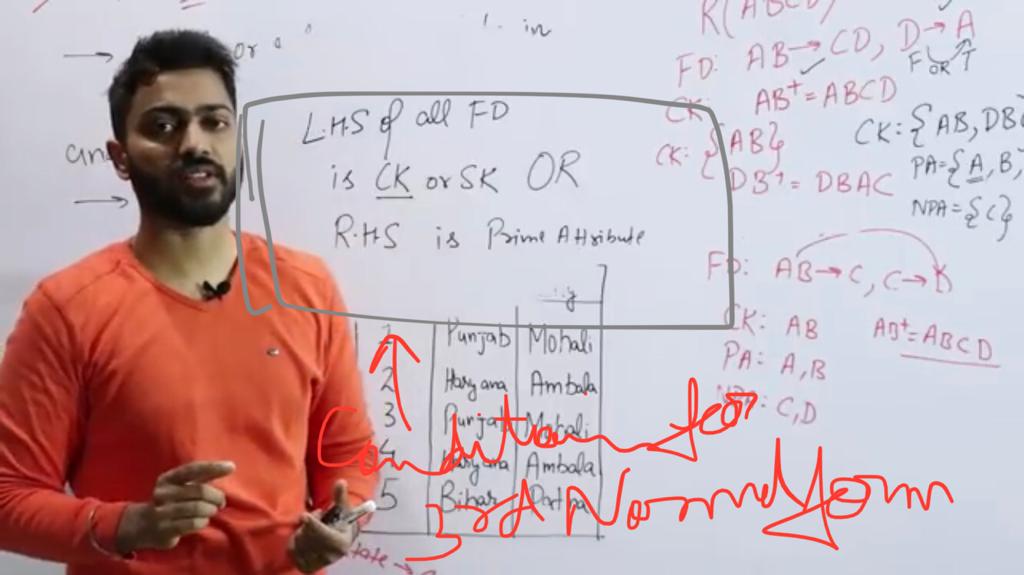 or
in
L.H.S of all FD
is CK or SK OR
R.H.S is Prime Attribute
1 Punjab Mohali
2 Haryana Ambala
3 Punjab Mohali
4 Haryana Ambala
5 Bihar Patna
Condition for
3rd Normal form
R(ABCD)
FD: AB→CD, D→A
F OR T
CK: AB⁺=ABCD
CK: {AB}
DB⁺= DBAC
CK: {AB, DB
PA={A, B,
NPA={C}
FD: AB→C, C→D
CK: AB
AB⁺=ABCD
PA: A,B
NPA: C,D